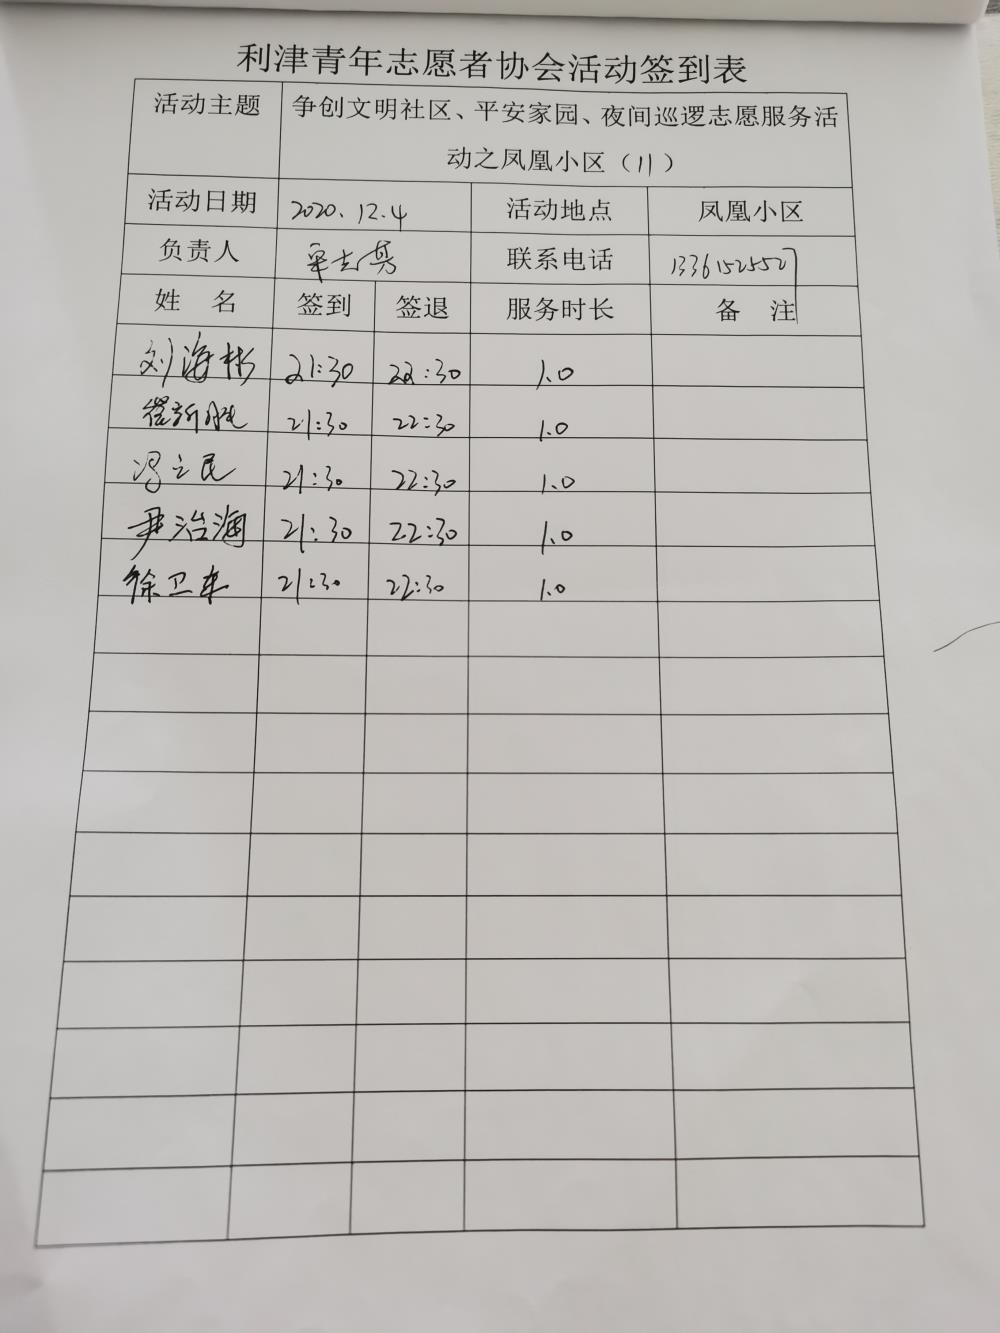 利津青年志愿者协会活动签到表
活动主题 争创文明社区、平安家园、夜间巡逻志愿服务活
动之凤凰小区（11）
活动日期 2020.12.4 活动地点 凤凰小区
负责人 联系电话 13361525527
姓 名 签到 签退 服务时长 备 注
刘海彬 21:30 22:30 1.0
21:30 22:30 1.0
冯立民 21:30 22:30 1.0
尹治海 21:30 22:30 1.0
徐卫车 21:30 22:30 1.0